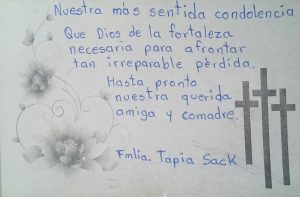 Nuestra más sentida condolencia
Que Dios de la fortaleza
necesaria para afrontar
tan irreparable pèrdida.
Hasta pronto
nuestra querida
amiga y comadre.
Fmlia. Tapia Sack